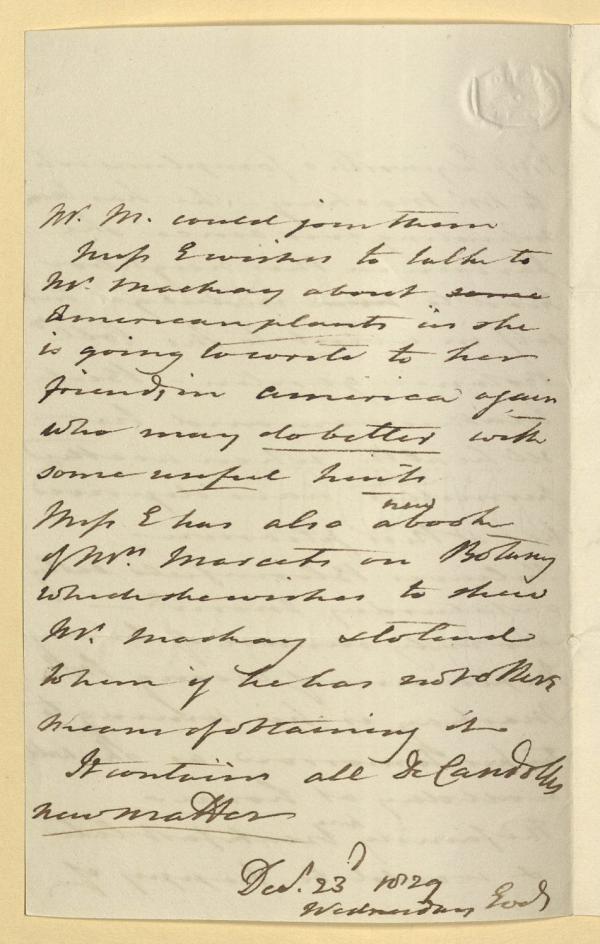 Mr. M. could join them
Miss E wishes to talk to
Mr. Mackay about some
American plants as she
is going to write to her
friends in America again
who may do better with
some useful hints
Miss E has also a new book
of Mrs. Marcets on Botany
which she wishes to shew
Mr. Mackay & to lend
to him if he has not other
means of obtaining it
It contains all De Candolles
new matter
Decr. 23d 1829
Wednesday